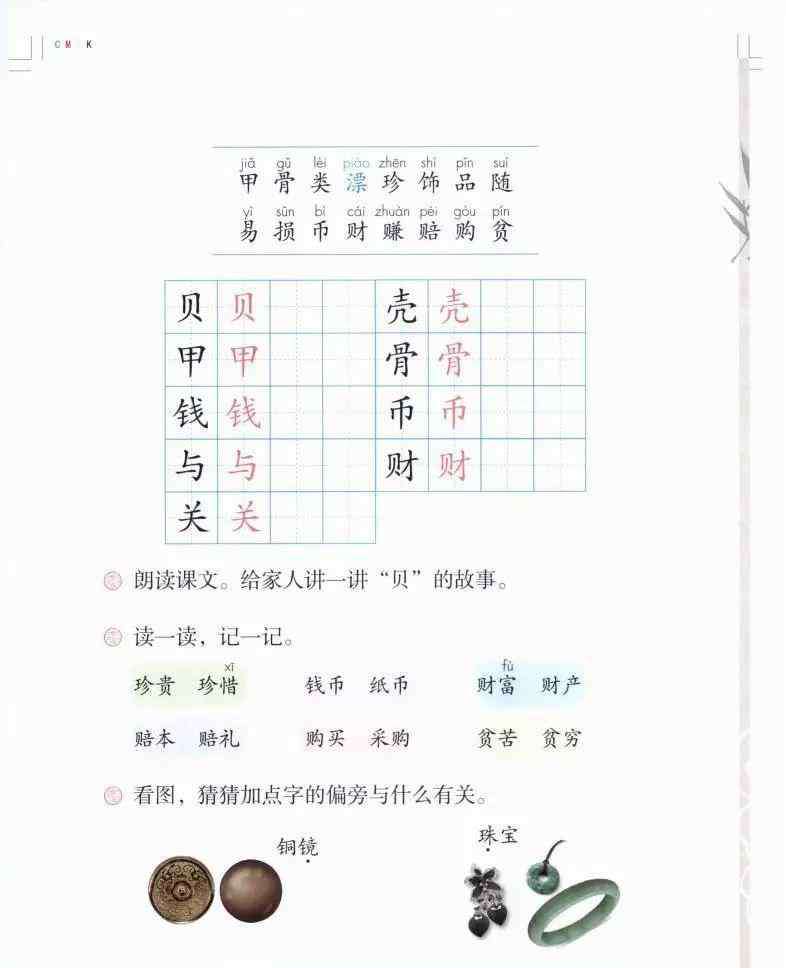 CM K
jiǎ gǔ lèi piào zhēn shì pǐn suí
甲 骨 类 漂 珍 饰 品 随
yì sǔn bì cái zhuàn péi gòu pín
易 损 币 财 赚 赔 购 贫
贝 贝 壳 壳
甲 甲 骨 骨
钱 钱 币 币
与 与 财 财
关 关
朗读课文。给家人讲一讲“贝”的故事。
读一读，记一记。
xī fù
珍贵 珍惜 钱币 纸币 财富 财产
赔本 赔礼 购买 采购 贫苦 贫穷
看图，猜猜加点字的偏旁与什么有关。
铜镜 珠宝